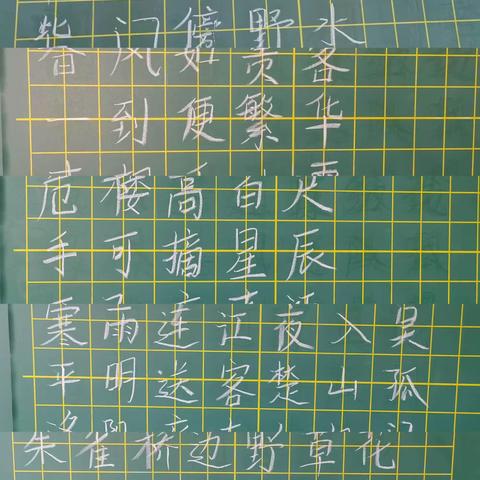 柴门傍野水
春风如贵客
一到便繁华
危楼高百尺
手可摘星辰
寒雨连江夜入吴
平明送客楚山孤
朱雀桥边野草花